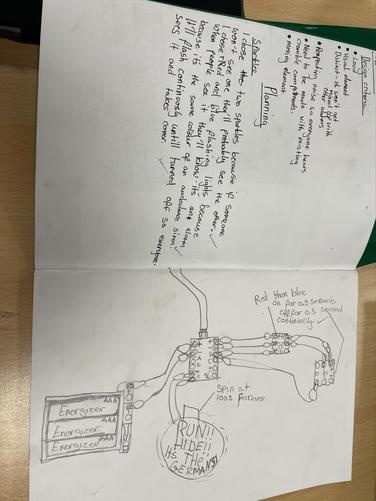 Design criteria
• Loud
• Visual element
• Distinct - won't get
mixed up with
other alarms
• Repeating noise so everyone hears
• Need to be made with existing
crumble components.
• moving element
Planning
Sparkles
I chose the two sparkles because if someone
won't see one they'll probably see the other.
I chose red and blue flashing lights because
when people see it they'll know its an alarm
because its the same colour of an ambulance siren.
It'll flash continuously until turned off so everyone
sees it and takes cover.
Red then blue
on for 0.5 seconds
off for 0.5 second
continously.
Spin at
100% forever
RUN!!
HIDE!!
ITS THE
GERMANS!
AAA
Energizer
AAA
Energizer
AAA
Energizer